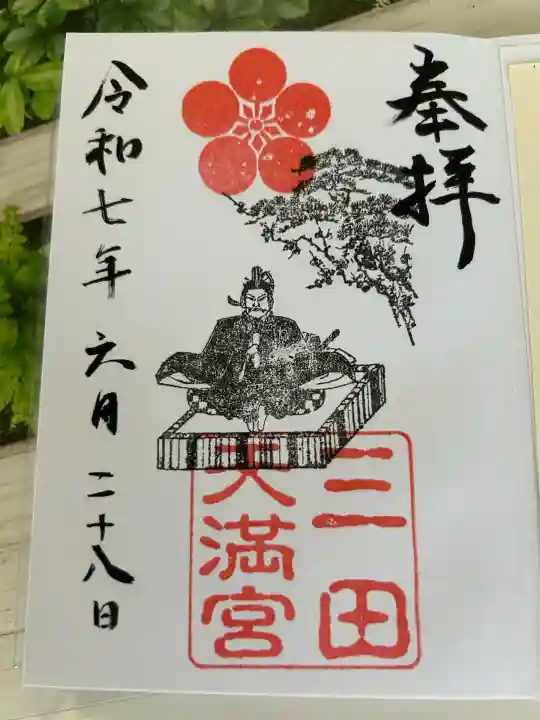 奉拝
三田
天満宮
令和七年六月二十八日